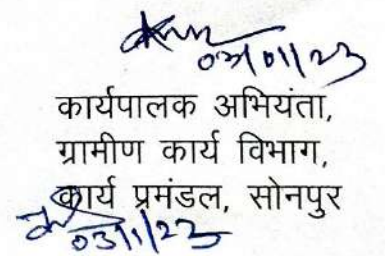 03/01/23
कार्यपालक अभियंता,
ग्रामीण कार्य विभाग,
कार्य प्रमंडल, सोनपुर
03/1/23